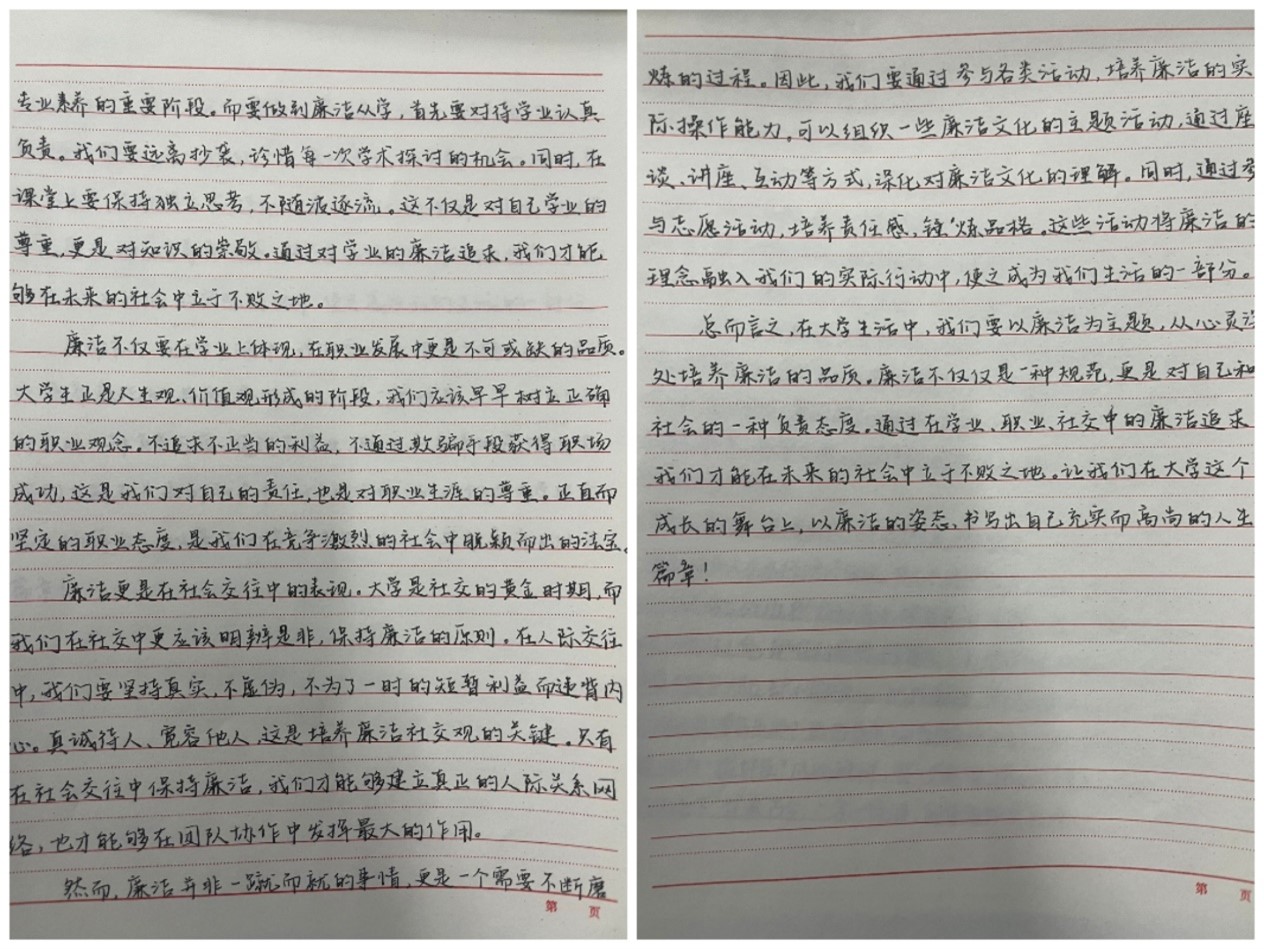 专业素养的重要阶段。而要做到廉洁从学，首先要对待学业认真
负责。我们要远离抄袭，珍惜每一次学术探讨的机会。同时，在
课堂上要保持独立思考，不随波逐流。这不仅是对自己学业的
尊重，更是对知识的崇敬。通过对学业的廉洁追求，我们才能
够在未来的社会中立于不败之地。
廉洁不仅要在学业上体现，在职业发展中更是不可或缺的品质。
大学生正是人生观、价值观形成的阶段，我们应该早早树立正确
的职业观念。不追求不正当的利益，不通过欺骗手段获得职场
成功，这是我们对自己的责任，也是对职业生涯的尊重。正直而
坚定的职业态度，是我们在竞争激烈的社会中脱颖而出的法宝。
廉洁更是在社会交往中的表现。大学是社交的黄金时期，而
我们在社交中更应该明辨是非，保持廉洁的原则。在人际交往
中，我们要坚持真实，不虚伪，不为了一时的短暂利益而违背内
心。真诚待人、宽容他人，这是培养廉洁社交观的关键。只有
在社会交往中保持廉洁，我们才能够建立真正的人际关系网
络，也才能够在团队协作中发挥最大的作用。
然而，廉洁并非一蹴而就的事情，更是一个需要不断磨
第 页
炼的过程。因此，我们要通过参与各类活动，培养廉洁的实
际操作能力，可以组织一些廉洁文化的主题活动，通过座
谈、讲座、互动等方式，深化对廉洁文化的理解。同时，通过参
与志愿活动，培养责任感，锤炼品格。这些活动将廉洁的
理念融入我们的实际行动中，使之成为我们生活的一部分。
总而言之，在大学生活中，我们要以廉洁为主题，从心灵深
处培养廉洁的品质。廉洁不仅仅是一种规范，更是对自己和
社会的一种负责态度。通过在学业、职业、社交中的廉洁追求
我们才能在未来的社会中立于不败之地。让我们在大学这个
成长的舞台上，以廉洁的姿态，书写出自己充实而高尚的人生
篇章！
第 页